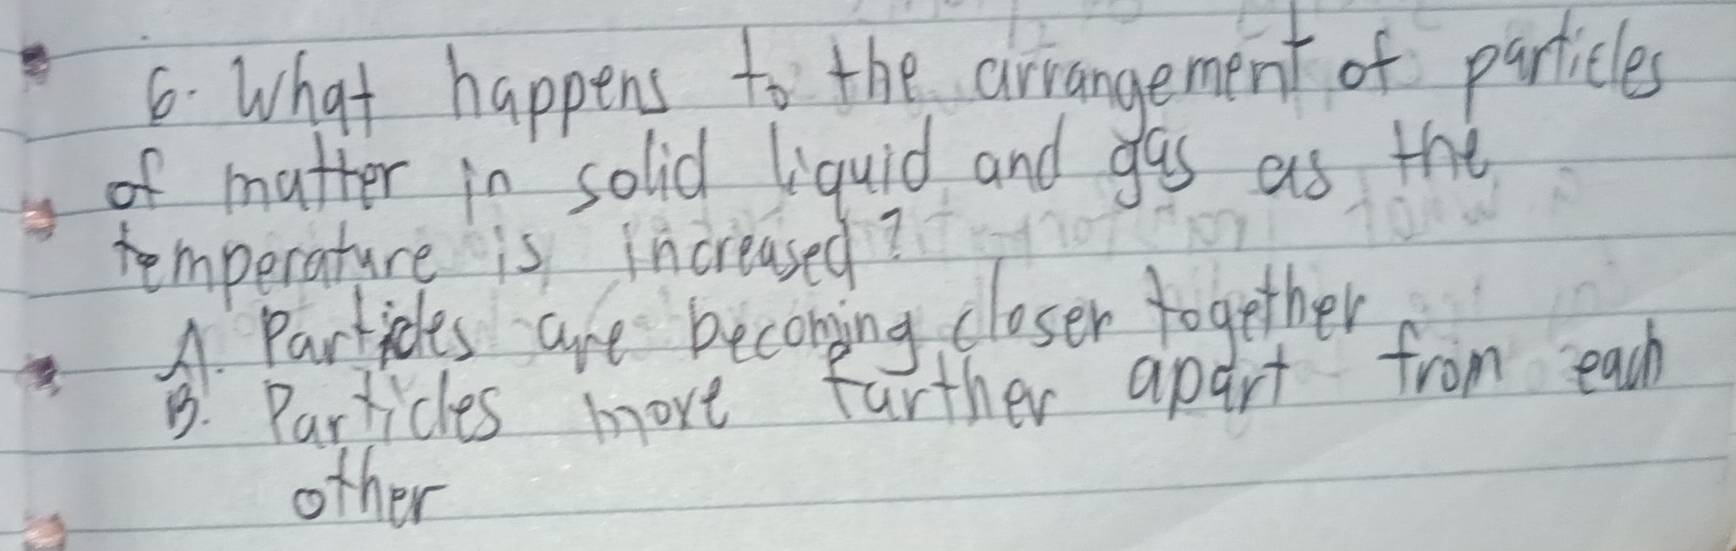 6. What happens to the arrangement of particles
of matter in solid liquid and gas as the
temperature is increased?
A. Particles are becoming closer together
B. Particles move farther apart from each
other